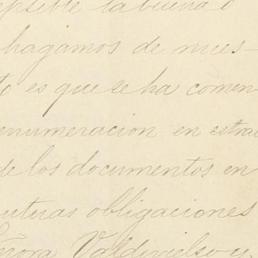 la buena o
hagamos de nues-
to es que se ha comen
enumeracion en estrac
de los documentos en
uturas obligaciones
Valdivielso y